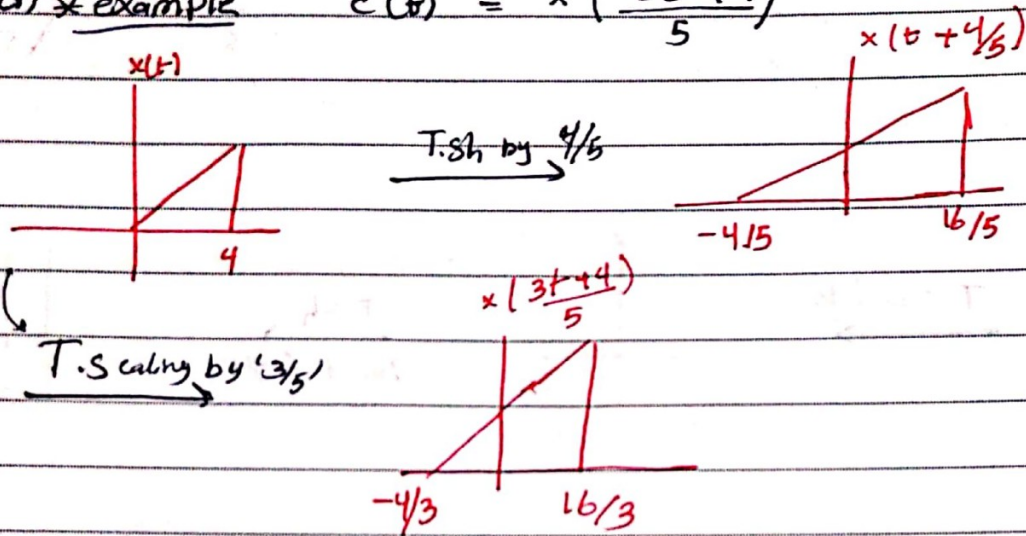 * example c(t) = x(
5
x(t)
4
T.sh by 4/5
x(t + 4/5)
-4/5
16/5
T.Scaling by '3/5'
x(3t+4
5)
-4/3
16/3